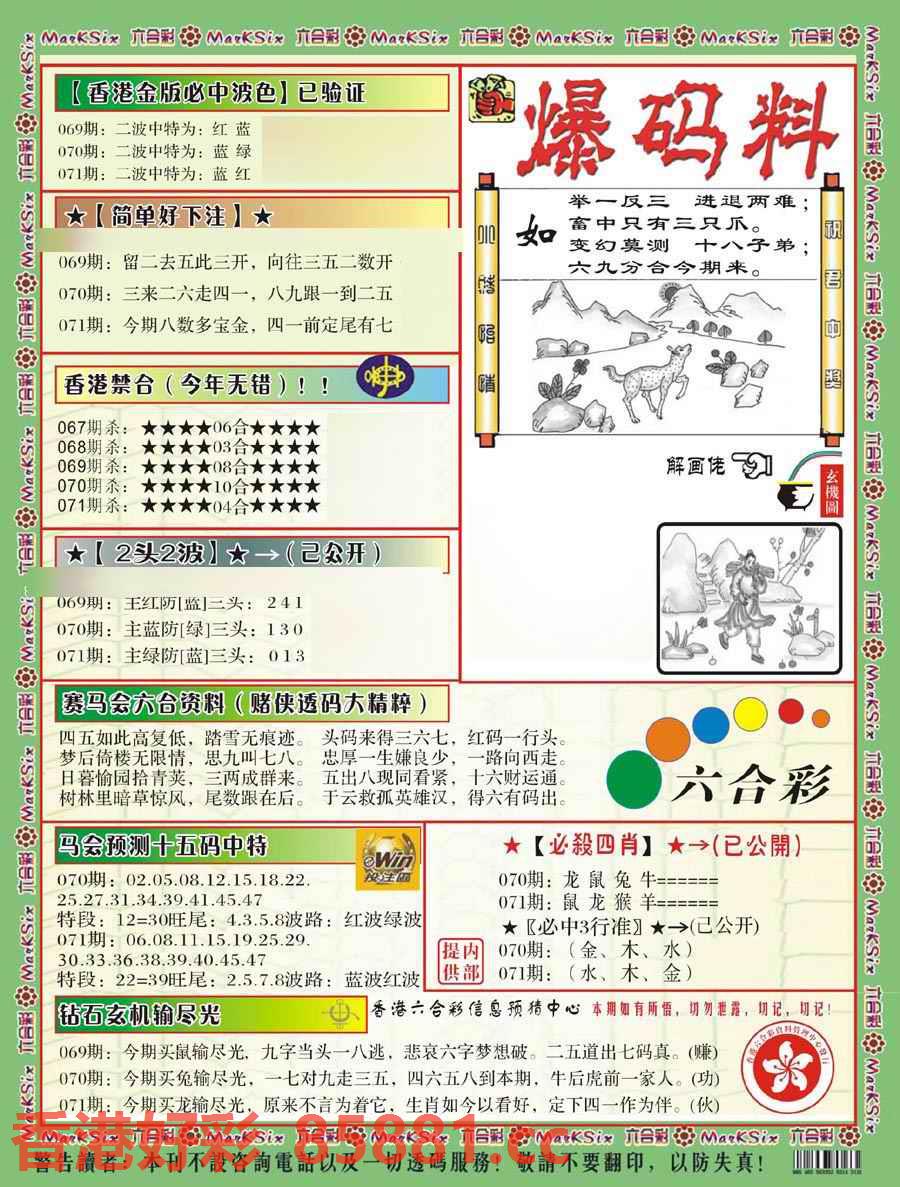 MarKSix 六合彩 MarKSix 六合彩 MarKSix 六合彩 MarKSix 六合彩 MarKSix 六合彩
【香港金版必中波色】已验证
069期：二波中特为：红 蓝
070期：二波中特为：蓝 绿
071期：二波中特为：蓝 红
★【简单好下注】★
069期：留二去五此三开，向往三五二数开
070期：三来二六走四一，八九跟一到二五
071期：今期八数多宝金，四一前定尾有七
香港禁合（今年无错）！！
067期杀：★★★★06合★★★★
068期杀：★★★★03合★★★★
069期杀：★★★★08合★★★★
070期杀：★★★★10合★★★★
071期杀：★★★★04合★★★★
★【2头2波】★→(已公开)
069期：主红防[蓝]三头：2 4 1
070期：主蓝防[绿]三头：1 3 0
071期：主绿防[蓝]三头：0 1 3
爆码料
如
举一反三 进退两难；
畜中只有三只爪。
变幻莫测 十八子弟；
六九分合今期来。
祝君中奖
解画佬
玄機圖
赛马会六合资料（赌侠透码大精粹）
四五如此高复低，踏雪无痕迹。 头码来得三六七，红码一行头。
梦后倚楼无限情，思九叫七八。 忠厚一生嫌良少，一路向西走。
日暮愉园拾青荚，三两成群来。 五出八现同看紧，十六财运通。
树林里暗草惊风，尾数跟在后。 于云救孤英雄汉，得六有码出。
六合彩
马会预测十五码中特
eWin
投注區
070期：02.05.08.12.15.18.22.
25.27.31.34.39.41.45.47
特段：12=30旺尾：4.3.5.8波路：红波绿波
071期：06.08.11.15.19.25.29.
30.33.36.38.39.40.45.47
特段：22=39旺尾：2.5.7.8波路：蓝波红波
★【必殺四肖】★→(已公開)
070期：龙 鼠 兔 牛======
071期：鼠 龙 猴 羊======
★〖必中3行准〗★→(已公开)
070期：（金、木、水）
071期：（水、木、金）
内部提供
钻石玄机输尽光
香港六合彩信息预猜中心 本期如有所悟，切勿泄露，切记，切记！
069期：今期买鼠输尽光，九字当头一八逃，悲哀六字梦想破。二五道出七码真。(赚)
070期：今期买兔输尽光，一七对九走三五，四六五八到本期，牛后虎前一家人。(功)
071期：今期买龙输尽光，原来不言为着它，生肖如今以看好，定下四一作为伴。(伙)
香港好彩 85881.cc
MarKSix 六合彩 MarKSix 六合彩 MarKSix 六合彩 MarKSix 六合彩 MarKSix 六合彩
警告讀者：本刊不設咨詢電話以及一切透碼服務！敬請不要翻印，以防失真！